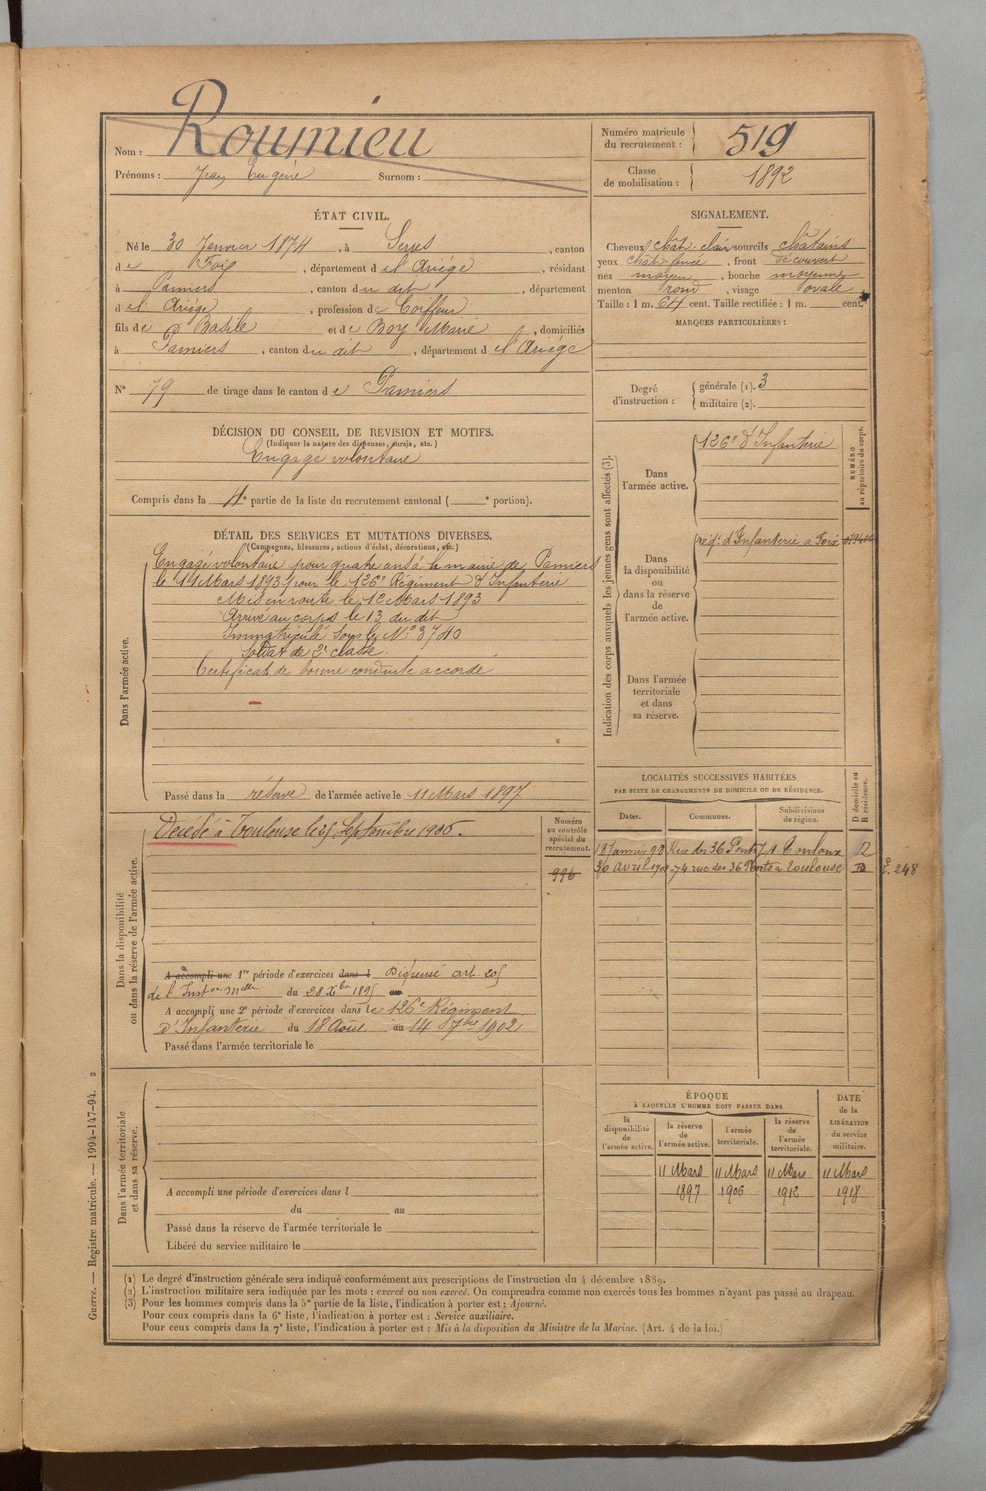 Nom : Roumieu
Prénoms : Jean Eugène Surnom :
Numéro matricule du recrutement : 519
Classe de mobilisation : 1892
ÉTAT CIVIL.
Né le 30 Janvier 1874, à Serres, canton
de Foix, département de l'Ariège, résidant
à Pamiers, canton du dit, département
de l'Ariège, profession de Coiffeur
fils de Basile et de Boy Marie, domiciliés
à Pamiers, canton du dit, département de l'Ariège
N° 79 de tirage dans le canton de Pamiers
SIGNALEMENT.
Cheveux chât. clair sourcils châtains
yeux chât. foncé, front découvert
nez moyen, bouche moyenne
menton rond, visage ovale
Taille : 1 m. 64 cent. Taille rectifiée : 1 m. cent.
MARQUES PARTICULIÈRES :
Degré d'instruction : générale (1). 3
militaire (2).
DÉCISION DU CONSEIL DE REVISION ET MOTIFS.
(Indiquer la nature des dispenses, sursis, etc.)
Engagé volontaire
Compris dans la 4e partie de la liste du recrutement cantonal ( e portion).
DÉTAIL DES SERVICES ET MUTATIONS DIVERSES.
(Campagnes, blessures, actions d'éclat, décorations, etc.)
Dans l'armée active.
Engagé volontaire pour quatre ans à la mairie de Pamiers
le 11 Mars 1893 pour le 126e Régiment d'Infanterie
Mis en route le 12 Mars 1893
Arrivé au corps le 13 du dit
Immatriculé sous le N° 3740
Soldat de 2e classe.
Certificat de bonne conduite accordé
Passé dans la réserve de l'armée active le 11 Mars 1897
Indication des corps auxquels les jeunes gens sont affectés (3).
NUMÉRO au répertoire du corps.
Dans l'armée active.
126e d'Infanterie
Dans la disponibilité ou dans la réserve de l'armée active.
rég.t d'Infanterie à Foix
Dans l'armée territoriale et dans sa réserve.
LOCALITÉS SUCCESSIVES HABITÉES
PAR SUITE DE CHANGEMENTS DE DOMICILE OU DE RÉSIDENCE.
Dates. Communes. Subdivisions de région. D domicile ou R résidence.
Janvier 98 Rue des 36 Ponts Toulouse
30 avril 74 rue des 36 Ponts à Toulouse 248
Dans la disponibilité ou dans la réserve de l'armée active.
Numéro au contrôle spécial du recrutement.
996
Décédé à Toulouse le Septembre
A accompli une 1re période d'exercices dans l Dispensé art.
de l'Inston melle du 28 Xbre 1895 au
A accompli une 2e période d'exercices dans le 126e Régiment
d'Infanterie du 18 Août au 14 7bre 1902
Passé dans l'armée territoriale le
Dans l'armée territoriale et dans sa réserve.
A accompli une période d'exercices dans l
du au
Passé dans la réserve de l'armée territoriale le
Libéré du service militaire le
ÉPOQUE
À LAQUELLE L'HOMME DOIT PASSER DANS
la disponibilité de l'armée active. la réserve de l'armée active. l'armée territoriale. la réserve de l'armée territoriale. DATE de la LIBÉRATION du service militaire.
11 Mars 11 Mars 11 Mars 11 Mars
1897 1906 1912 1918
Guerre. — Registre matricule. — 1994-147-94. 2
(1) Le degré d'instruction générale sera indiqué conformément aux prescriptions de l'instruction du 4 décembre 1889.
(2) L'instruction militaire sera indiquée par les mots : exercé ou non exercé. On comprendra comme non exercés tous les hommes n'ayant pas passé au drapeau.
(3) Pour les hommes compris dans la 5e partie de la liste, l'indication à porter est : Ajourné.
Pour ceux compris dans la 6e liste, l'indication à porter est : Service auxiliaire.
Pour ceux compris dans la 7e liste, l'indication à porter est : Mis à la disposition du Ministre de la Marine. (Art. 4 de la loi.)